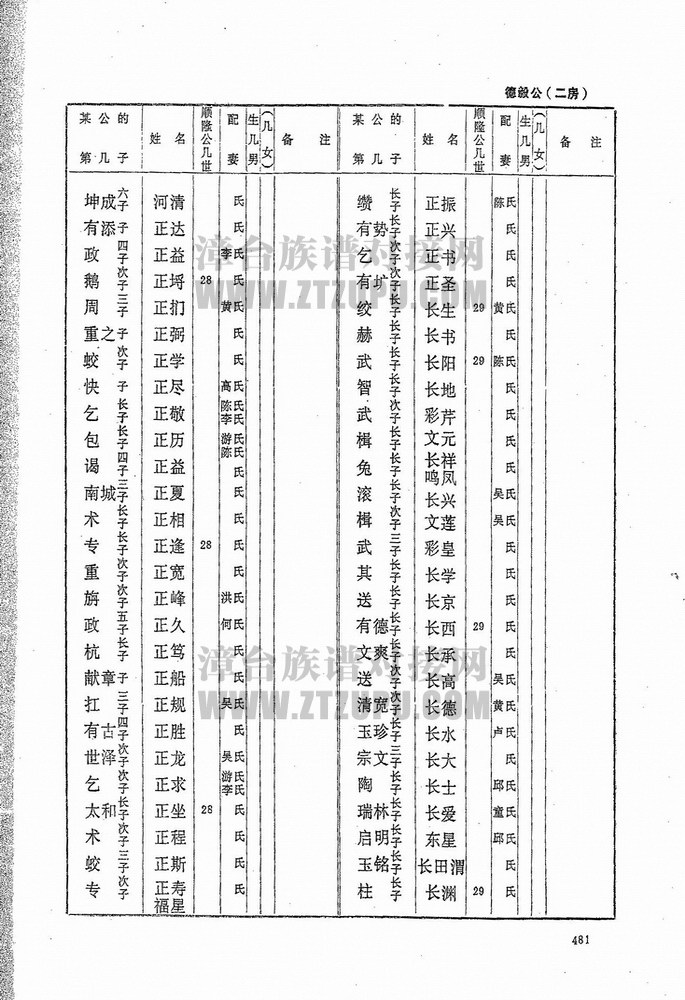 德毅公（二房）
某公的第几子 姓名 顺隆公几世 配妻 生几男（几女） 备注
坤成 六子 河清 氏
有添 子 正达 氏
政 四子 正益 李氏
鹅 次子 正埒 28 氏
周 三子 正扪 黄氏
重之 子 正弼 氏
蛟 次子 正学 氏
快 子 正尽 高氏
乞 长子 正敬 陈氏 李氏
包 长子 正历 游氏 陈氏
谒 四子 正益 氏
南城 三子 正夏 氏
术 长子 正相 氏
专 长子 正逢 28 氏
重 次子 正宽 氏
旃 次子 正峰 洪氏
政 五子 正久 何氏
杭 长子 正笃 氏
献章 子 正船 氏
扛 三子 正规 吴氏
有古 四子 正胜 氏
世泽 次子 正龙 吴氏
乞 次子 正求 游氏 李氏
太和 长子 正坐 28 氏
术 次子 正程 氏
蛟 三子 正斯 氏
专 次子 正寿 福星 氏
某公的第几子 姓名 顺隆公几世 配妻 生几男（几女） 备注
缵 长子 正振 陈氏
有势 长子 正兴 氏
乞 次子 正书 氏
有圹 次子 正圣 氏
绞 长子 长生 29 黄氏
赫 长子 长书 氏
武 长子 长阳 29 陈氏
智 长子 长地 氏
武 次子 彩芹 氏
楫 长子 文元 氏
兔 长子 长祥 鸣凤 氏
滚 长子 长兴 吴氏
楫 次子 文莲 吴氏
武 三子 彩皇 氏
其 长子 长学 氏
送 长子 长京 氏
有德 长子 长西 29 氏
文爽 长子 长承 氏
送 次子 长高 吴氏
清宽 次子 长德 黄氏
玉珍 长子 长水 卢氏
宗文 三子 长大 氏
陶 长子 长士 邱氏
瑞林 长子 长爱 童氏
启明 长子 东星 邱氏
玉铭 长子 长田渭 氏
柱 长子 长渊 29 氏
漳台族谱对接网
WWW.ZTZUPU.COM
漳台族谱对接网
WWW.ZTZUPU.COM
481